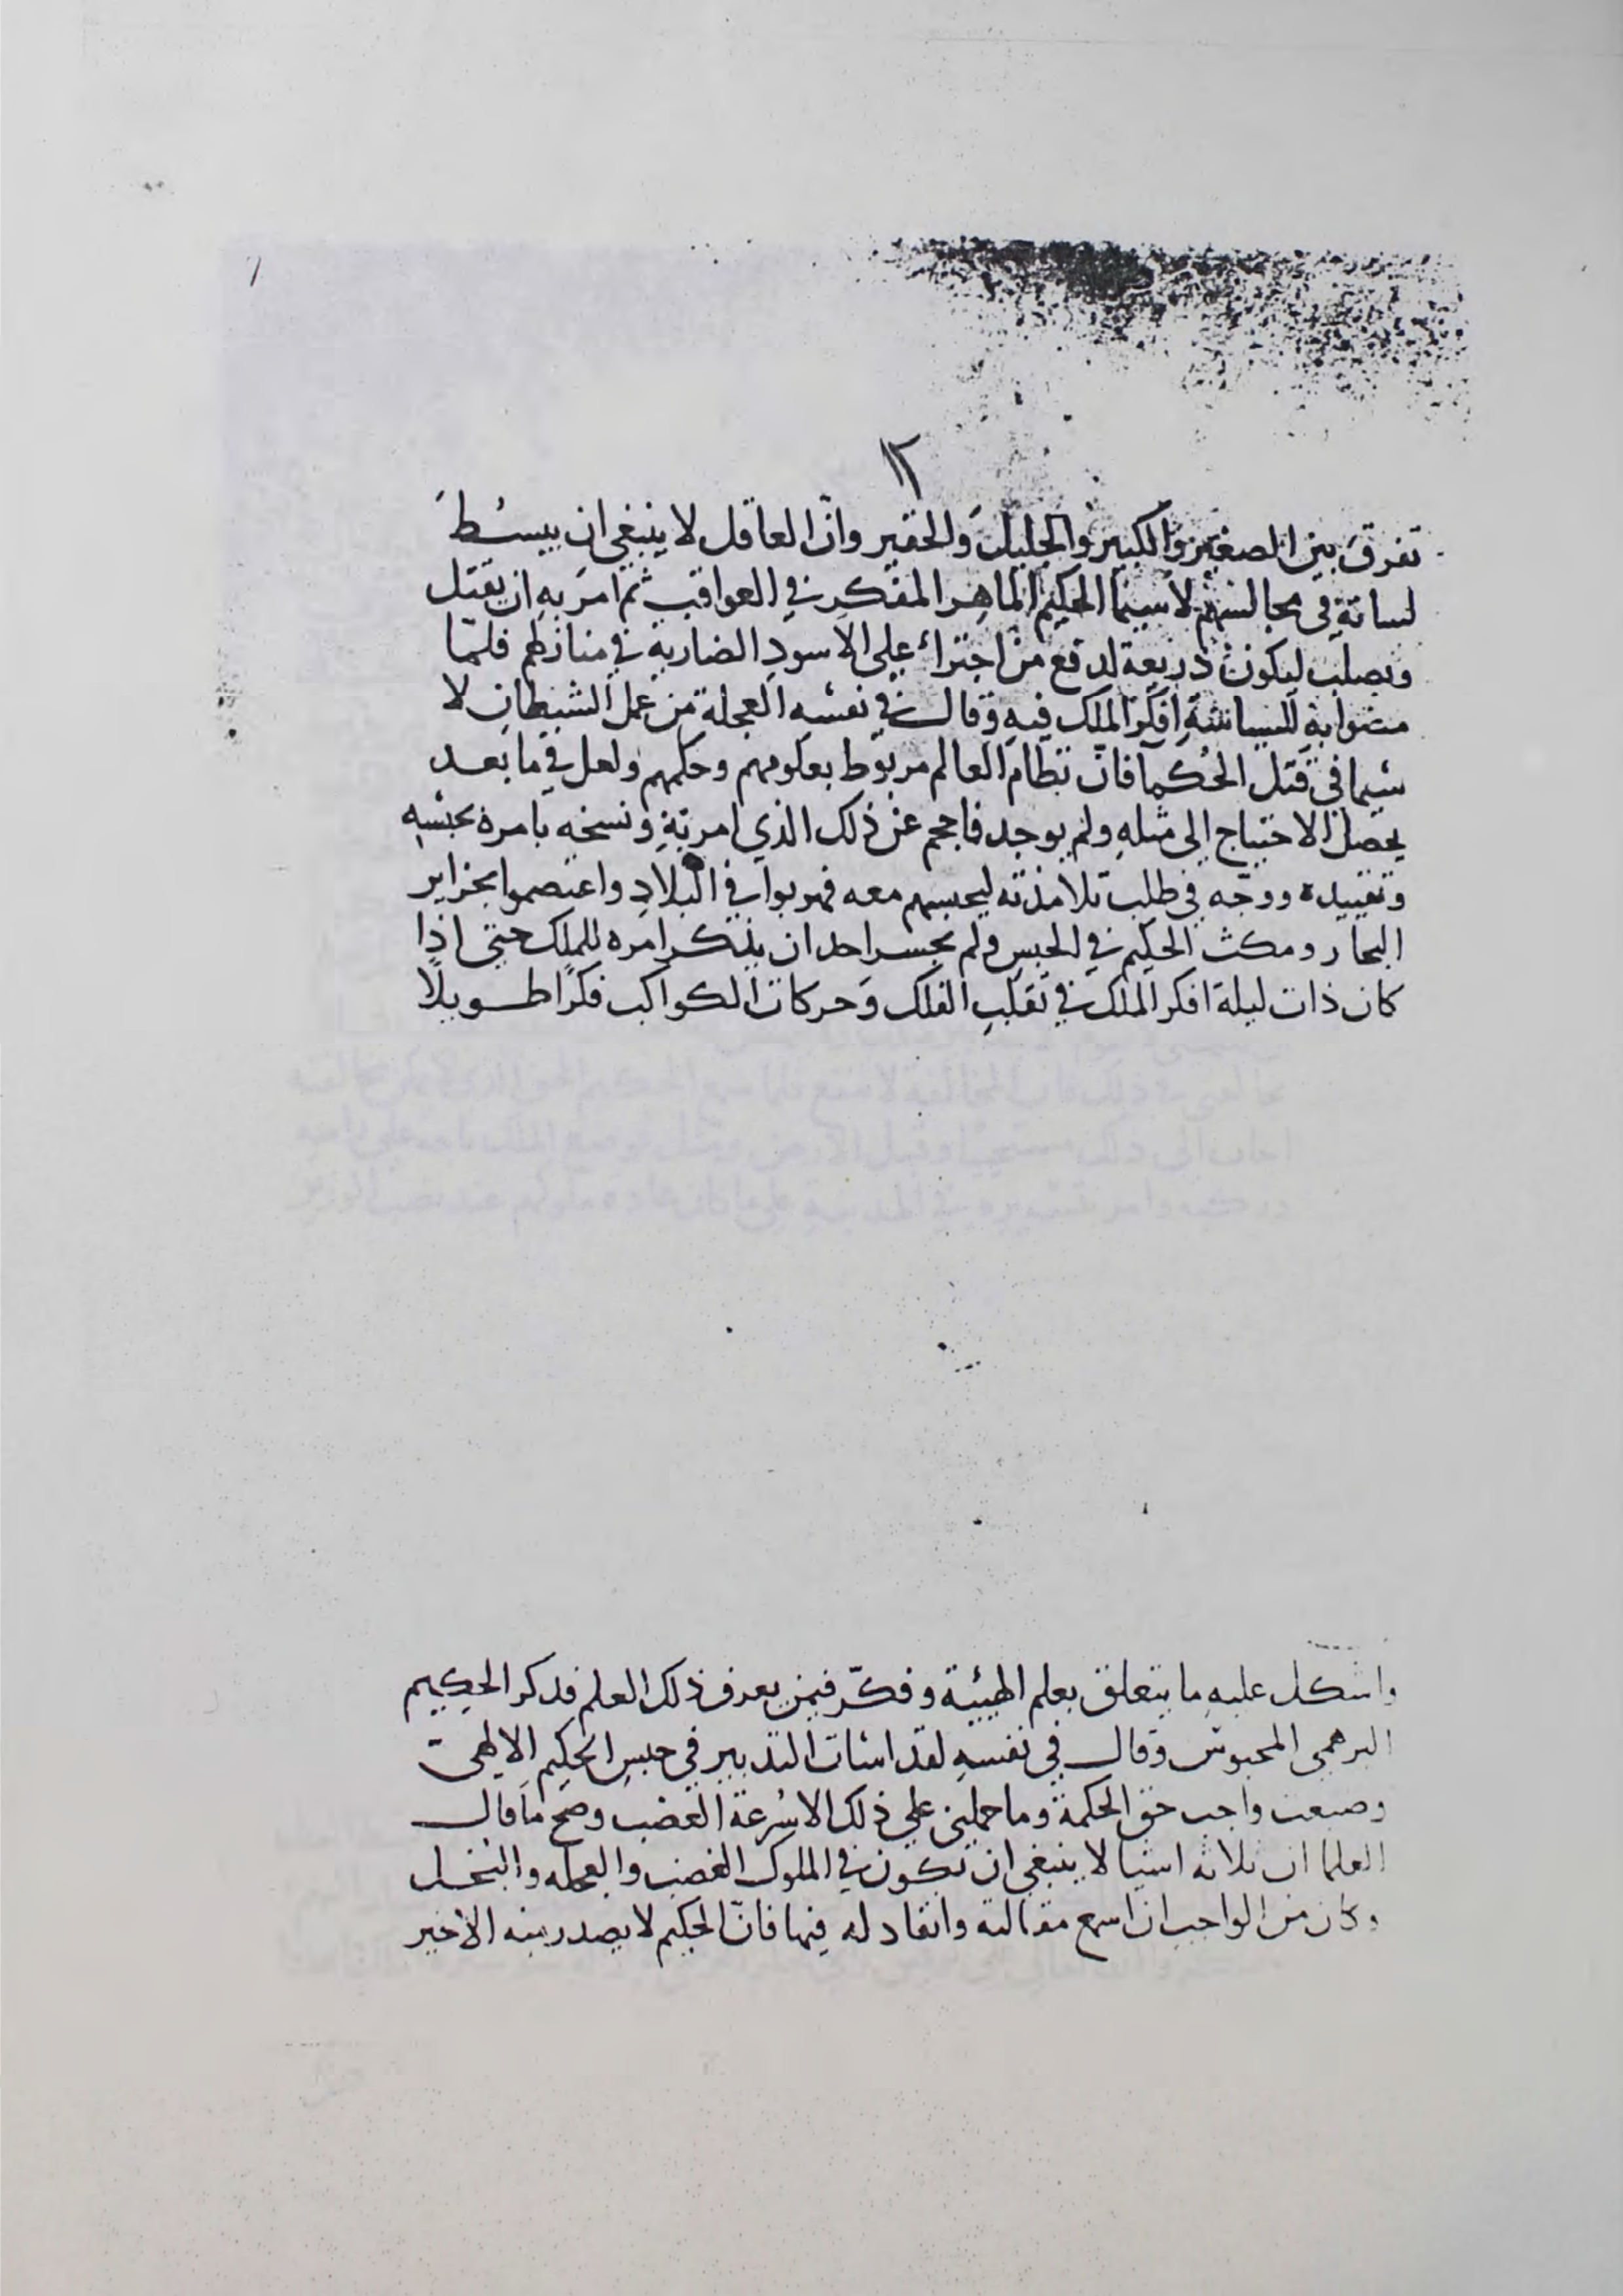 ١٢
تفرق بين الصغير والكبير والجليل والحقير وانّ العاقل لا ينبغي ان يبسُطَ
لسانه في مجالسهم لاسيما الحكيم الماهر المفكر في العواقب ثم امر به ان يقتل
ويصلب ليكون ذريعة لدفع من اجترا على الاسود الضارية في منازلهم فلمّا
مضوا به للسياسة افكر الملك فيه وقال في نفسه العجلة من عمل الشيطان لا
سيما في قتل الحُكما فانّ نظام العالم مربوط بعلومهم وحكمهم ولعل في ما بعد
يحصل الاحتياج الى مثله ولم يوجد فاحجم عن ذلك الذي امر به ونسخه بامره بحبسه
وتقييده ووجّه في طلب تلامذته ليحبسهم معه فهربوا في البلاد واعتصموا بجزاير
البحار ومكث الحكيم في الحبس ولم يجسر احد ان يذكر امره للملك حتى اذا
كان ذات ليلة افكر الملك في تقلب الفلك وحركات الكواكب فكرًا طويلًا
واشكل عليه ما يتعلق بعلم الهيئة وفكّر فيمن يعرف ذلك العلم فذكر الحكيم
البرهمي المحبوس وقال في نفسه لقد اسات التدبير في حبس الحكيم الالهيّ
وضيعت واجب حق الحكمة وما حملني علي ذلك الا سُرعة الغضب وصح ما قال
العلما ان ثلاثه اشيا لا ينبغي ان تكون في الملوك الغضب والعجله والبخل
وكان من الواجب ان اسمع مقالته وانقاد له فيها فانّ الحكيم لا يصدر منه الا خير